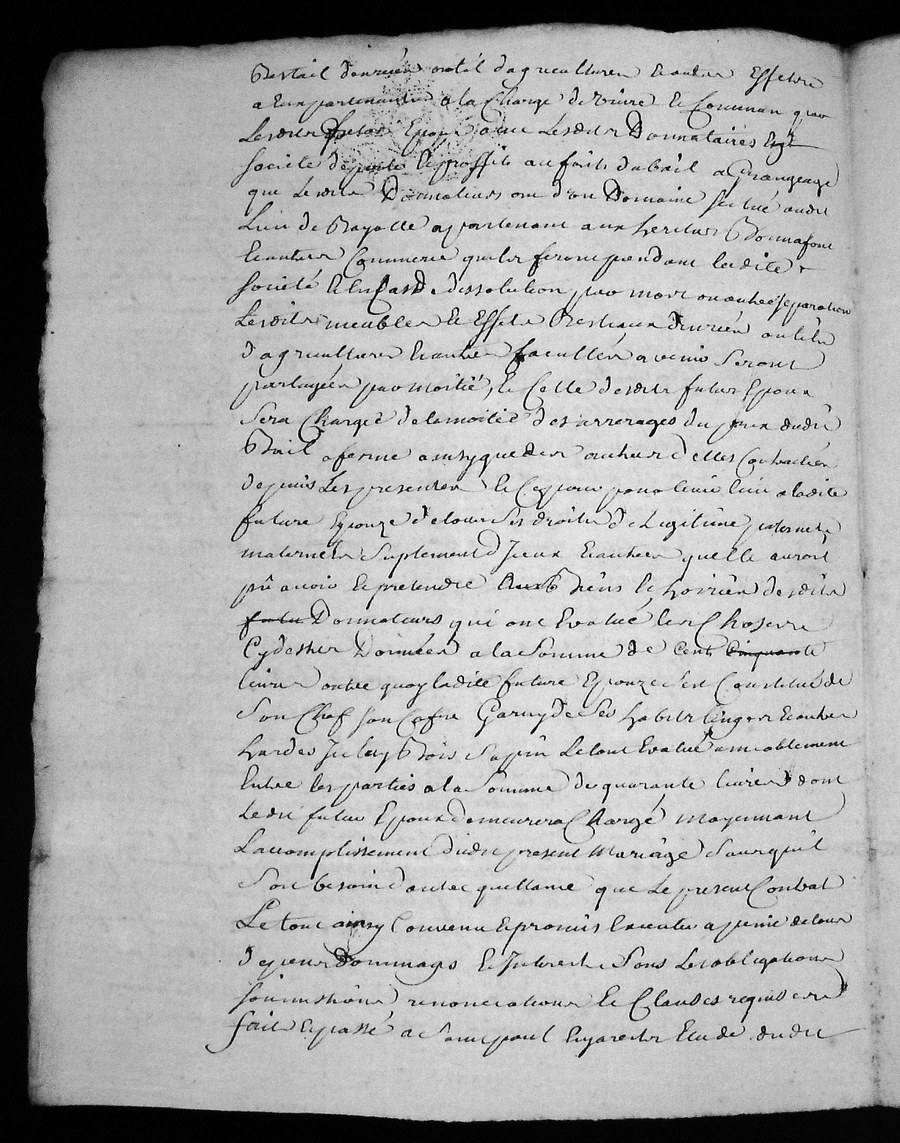 Bestail denrées outil dagriculture et autres Effets
a eux partenants a la Charge de vivre en Commun que
Lesdits futurs Epoux avec Lesdits Donnataires En
societé de perte et proffits au faits du bail a Grangeage
que Lesdits Donnateurs ont d'un Domaine scitué audit
Lieu de Bayolle appartenant aux heritiers Bonnafont
et autres Commerce quils feront pendant ladite
societé et En Cas de dissolution par mort ou autre separation
Lesdits meubles et Effets Bestiaux denrées outils
dagriculture et autres facultés a venir Seront
partagées par moitié, et Celle desdits futurs Epoux
Sera Chargée de la moitié des arrerages du prix dudit
Bail a ferme ainsy que des autres dettes Contractées
depuis Les presentes et Ce pour pour et tenir lieu a ladite
future Epouze de tous Ses droits de Legitime paternels
maternels Suplement d'Iceux et autres quelle auroit
pû avoir et pretendre Sur Biens et hoiries desdits
futu Donnateurs qui ont Evalué les Choses
Cydessus Données a la Somme de Cent Cinquante
livres outre quoy ladite future Epouze s'est Constitué de
Son Chef son Cofre Garny de Ses habits linges et autres
hardes Iceluy Bois Sapin Le tout Evalué amiablement
Entre les parties a la Somme de quarante livres dont
Ledit futur Epoux demeurera Chargé moyennant
Laccomplissement dudit present Mariage Sans quil
Soit besoin dautre quittance que Le present Contrat
Le tout ainsy Convenu et promis Executer a peine de tous
depens Dommages et Interests Sous Les obligations
soumissions renonciations et Clauses requises
fait et passé a Saint paul En Jarests Etude dudit